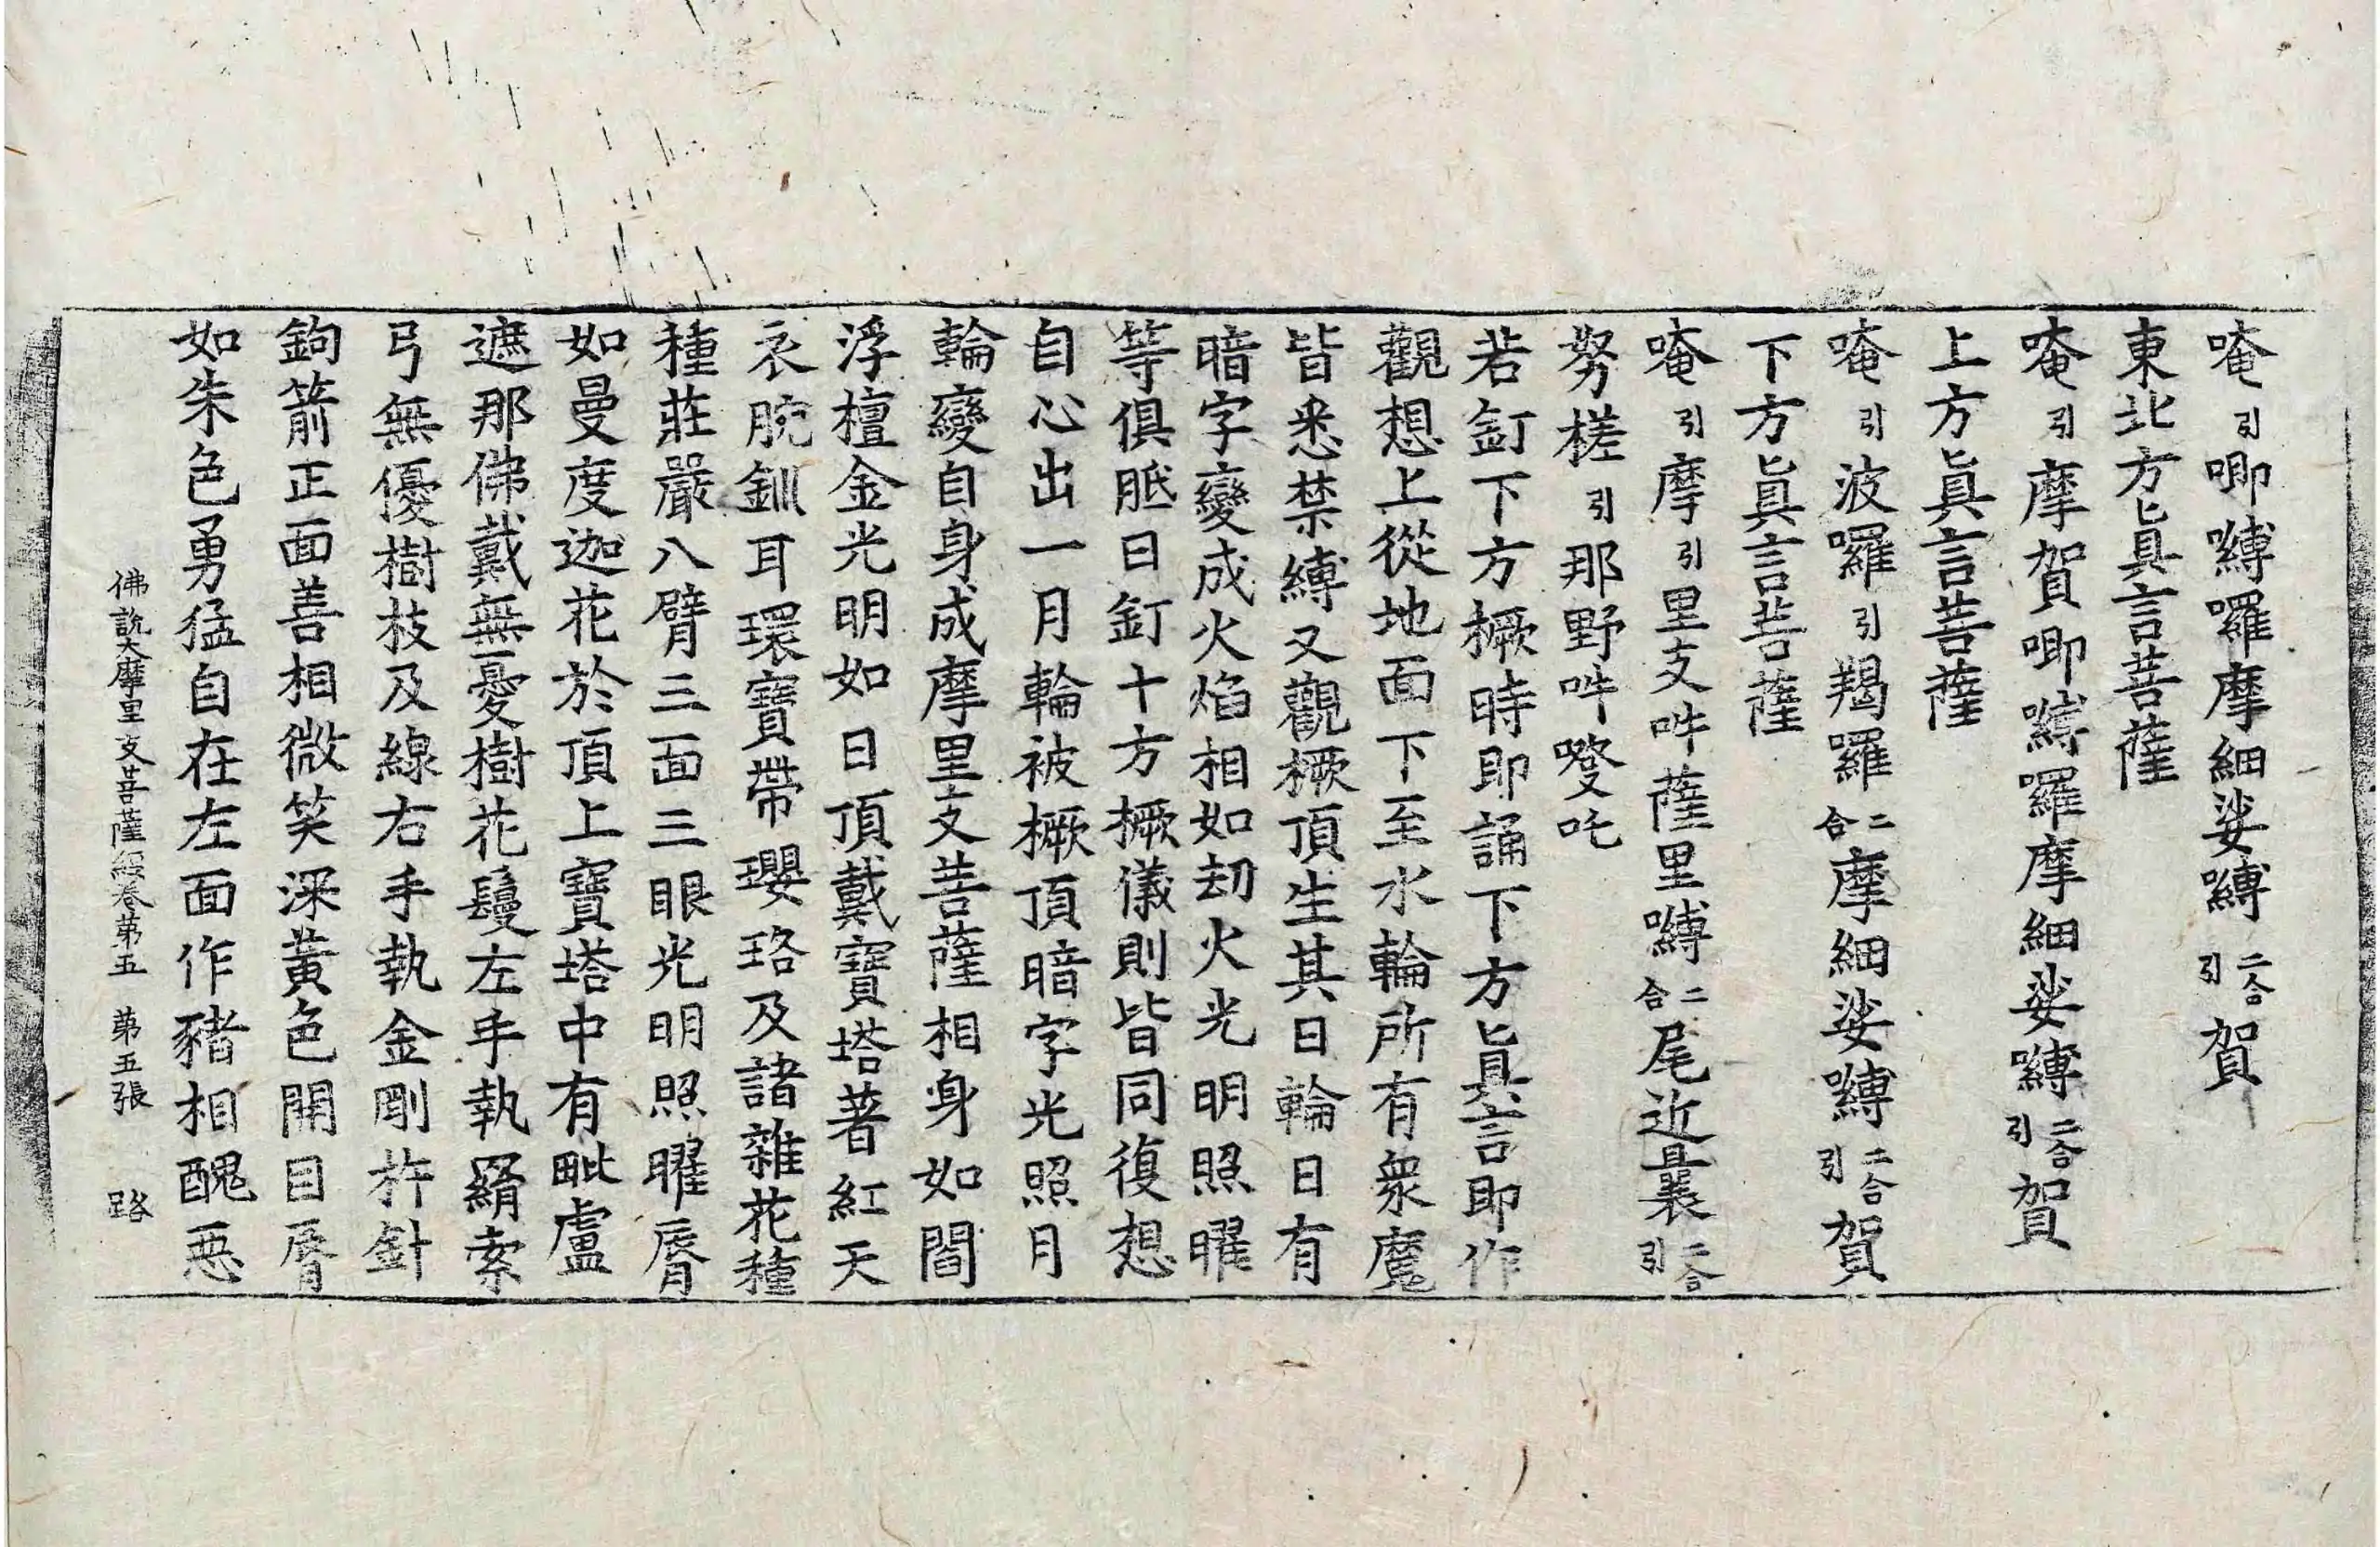 唵引唧嚩囉摩細娑嚩二合引賀
東北方眞言菩薩
唵引摩賀唧嚩囉摩細娑嚩二合引賀
上方眞言菩薩
唵引波囉引羯囉二合摩細娑嚩二合引賀
下方眞言菩薩
唵引摩引里支吽薩里嚩二合尾近曩二合引
努槎引那野吽㗳吒
若釘下方橛時即誦下方眞言即作
觀想上從地面下至水輪所有衆魔
皆悉禁縛又觀橛頂生其日輪日有
暗字變成火焰相如刧火光明照曜
等俱胝日釘十方橛儀則皆同復想
自心出一月輪被橛頂暗字光照月
輪變自身成摩里支菩薩相身如閻
浮檀金光明如日頂戴寶塔著紅天
衣腕釧耳環寶帶瓔珞及諸雜花種
種莊嚴八臂三面三眼光明照曜脣
如曼度迦花於頂上寶塔中有毗盧
遮那佛戴無憂樹花鬘左手執羂索
弓無優樹枝及線右手執金剛杵針
鉤箭正面善相微笑深黃色開目脣
如朱色勇猛自在左面作豬相醜惡
佛說大摩里支菩薩經卷第五 第五張 路